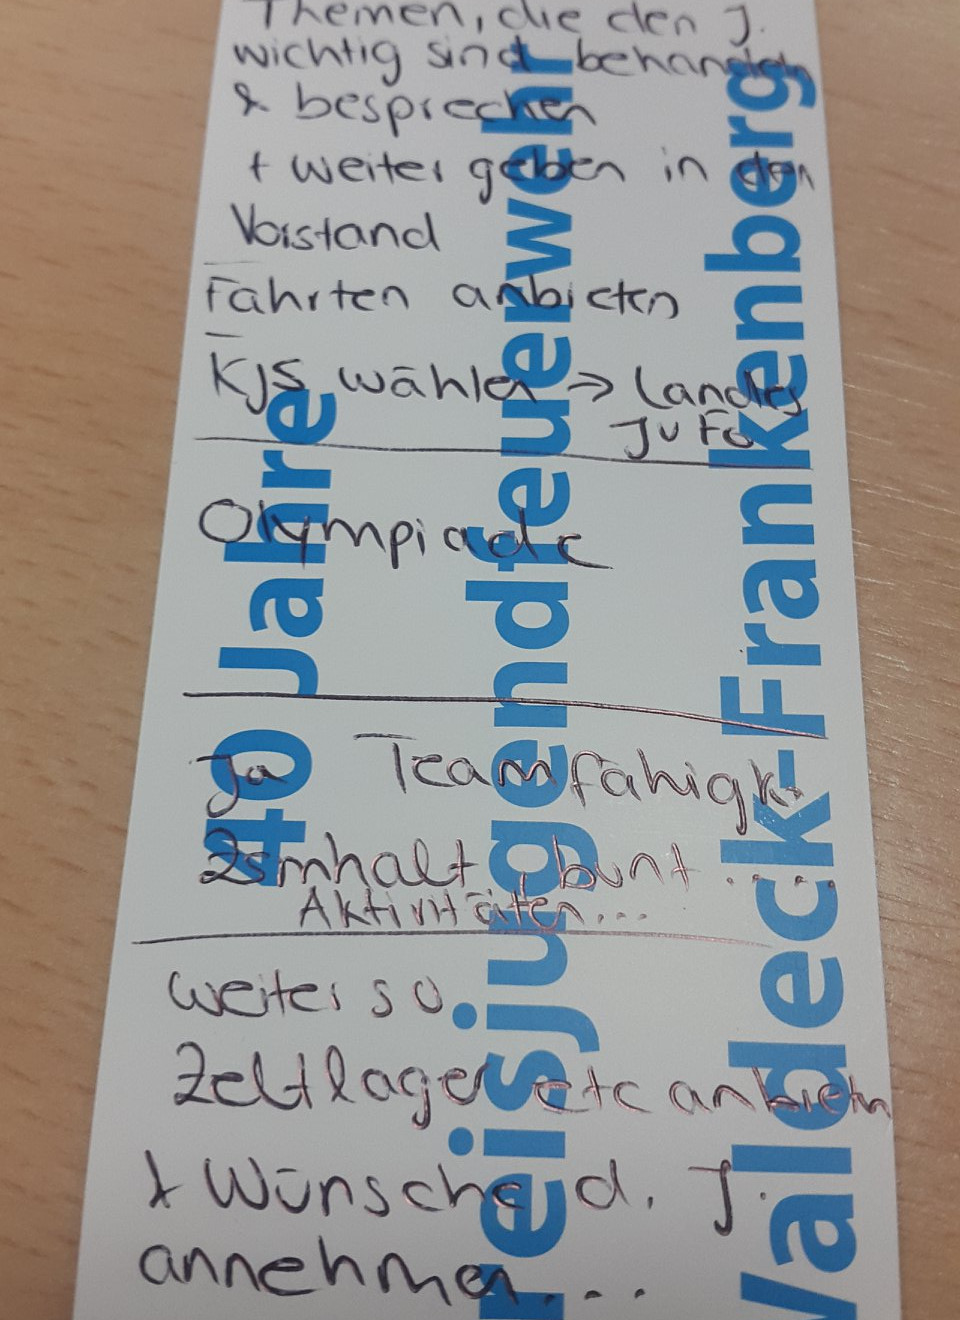 Themen, die den J.
wichtig sind behandeln
& besprechen
+ weiter geben in den
Vorstand
Fahrten anbieten
KJS wählen → Landes
JuFo
Olympiade
Ja Teamfähigk.
Zsmhalt, bunt.....
Aktivitäten...
weiter so
Zeltlager etc anbieten
& Wünsche d. J.
annehmen...
40 Jahre
reisjugendfeuerwehr
Waldeck-Frankenberg